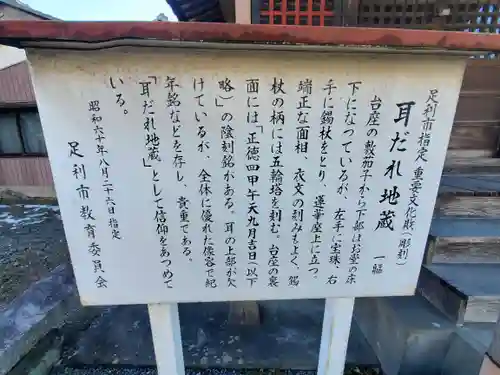 足利市指定 重要文化財(彫刻)
耳だれ地蔵 一軀
台座の敷茄子から下部はお堂の床
下になっているが、左手に宝珠、右
手に錫杖をとり、蓮華座上に立つ。
端正な面相、衣文の刻みもよく、錫
杖の柄には五輪塔を刻む。台座の裏
面には「正徳四甲午天九月吉日(以下
略)の陰刻銘がある。耳の上部が欠
けているが、全体に優れた像容で紀
年銘などを存し、貴重である。
「耳だれ地蔵」として信仰をあつめて
いる。
昭和六十年八月二十六日指定
足利市教育委員会